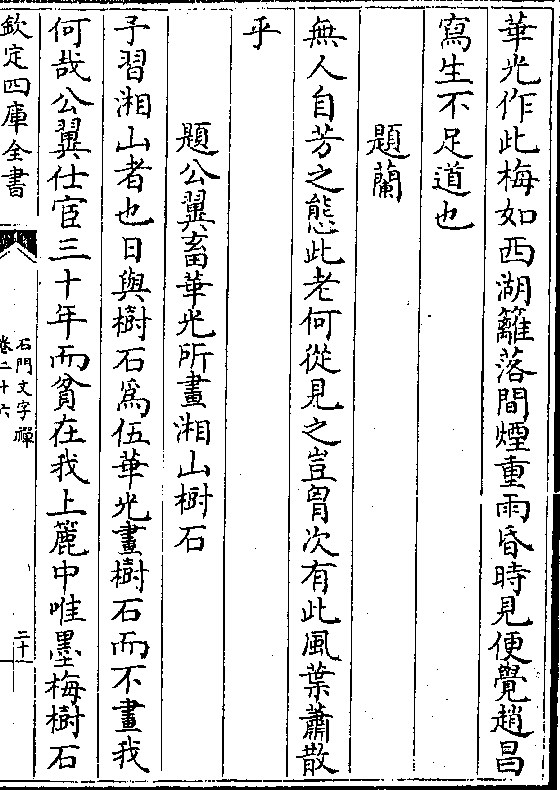 華光作此梅如西湖籬落間煙重雨昏時見便覺趙昌
寫生不足道也
題蘭
無人自芳之態此老何從見之豈胷次有此風葉蕭散
乎
題公翼畜華光所畫湘山樹石
予習湘山者也日與樹石為伍華光畫樹石而不畫我
何哉公翼仕宦三十年而貧在我上麓中唯墨梅樹石
欽定四庫全書
石門文字禪
卷二十六
二十一